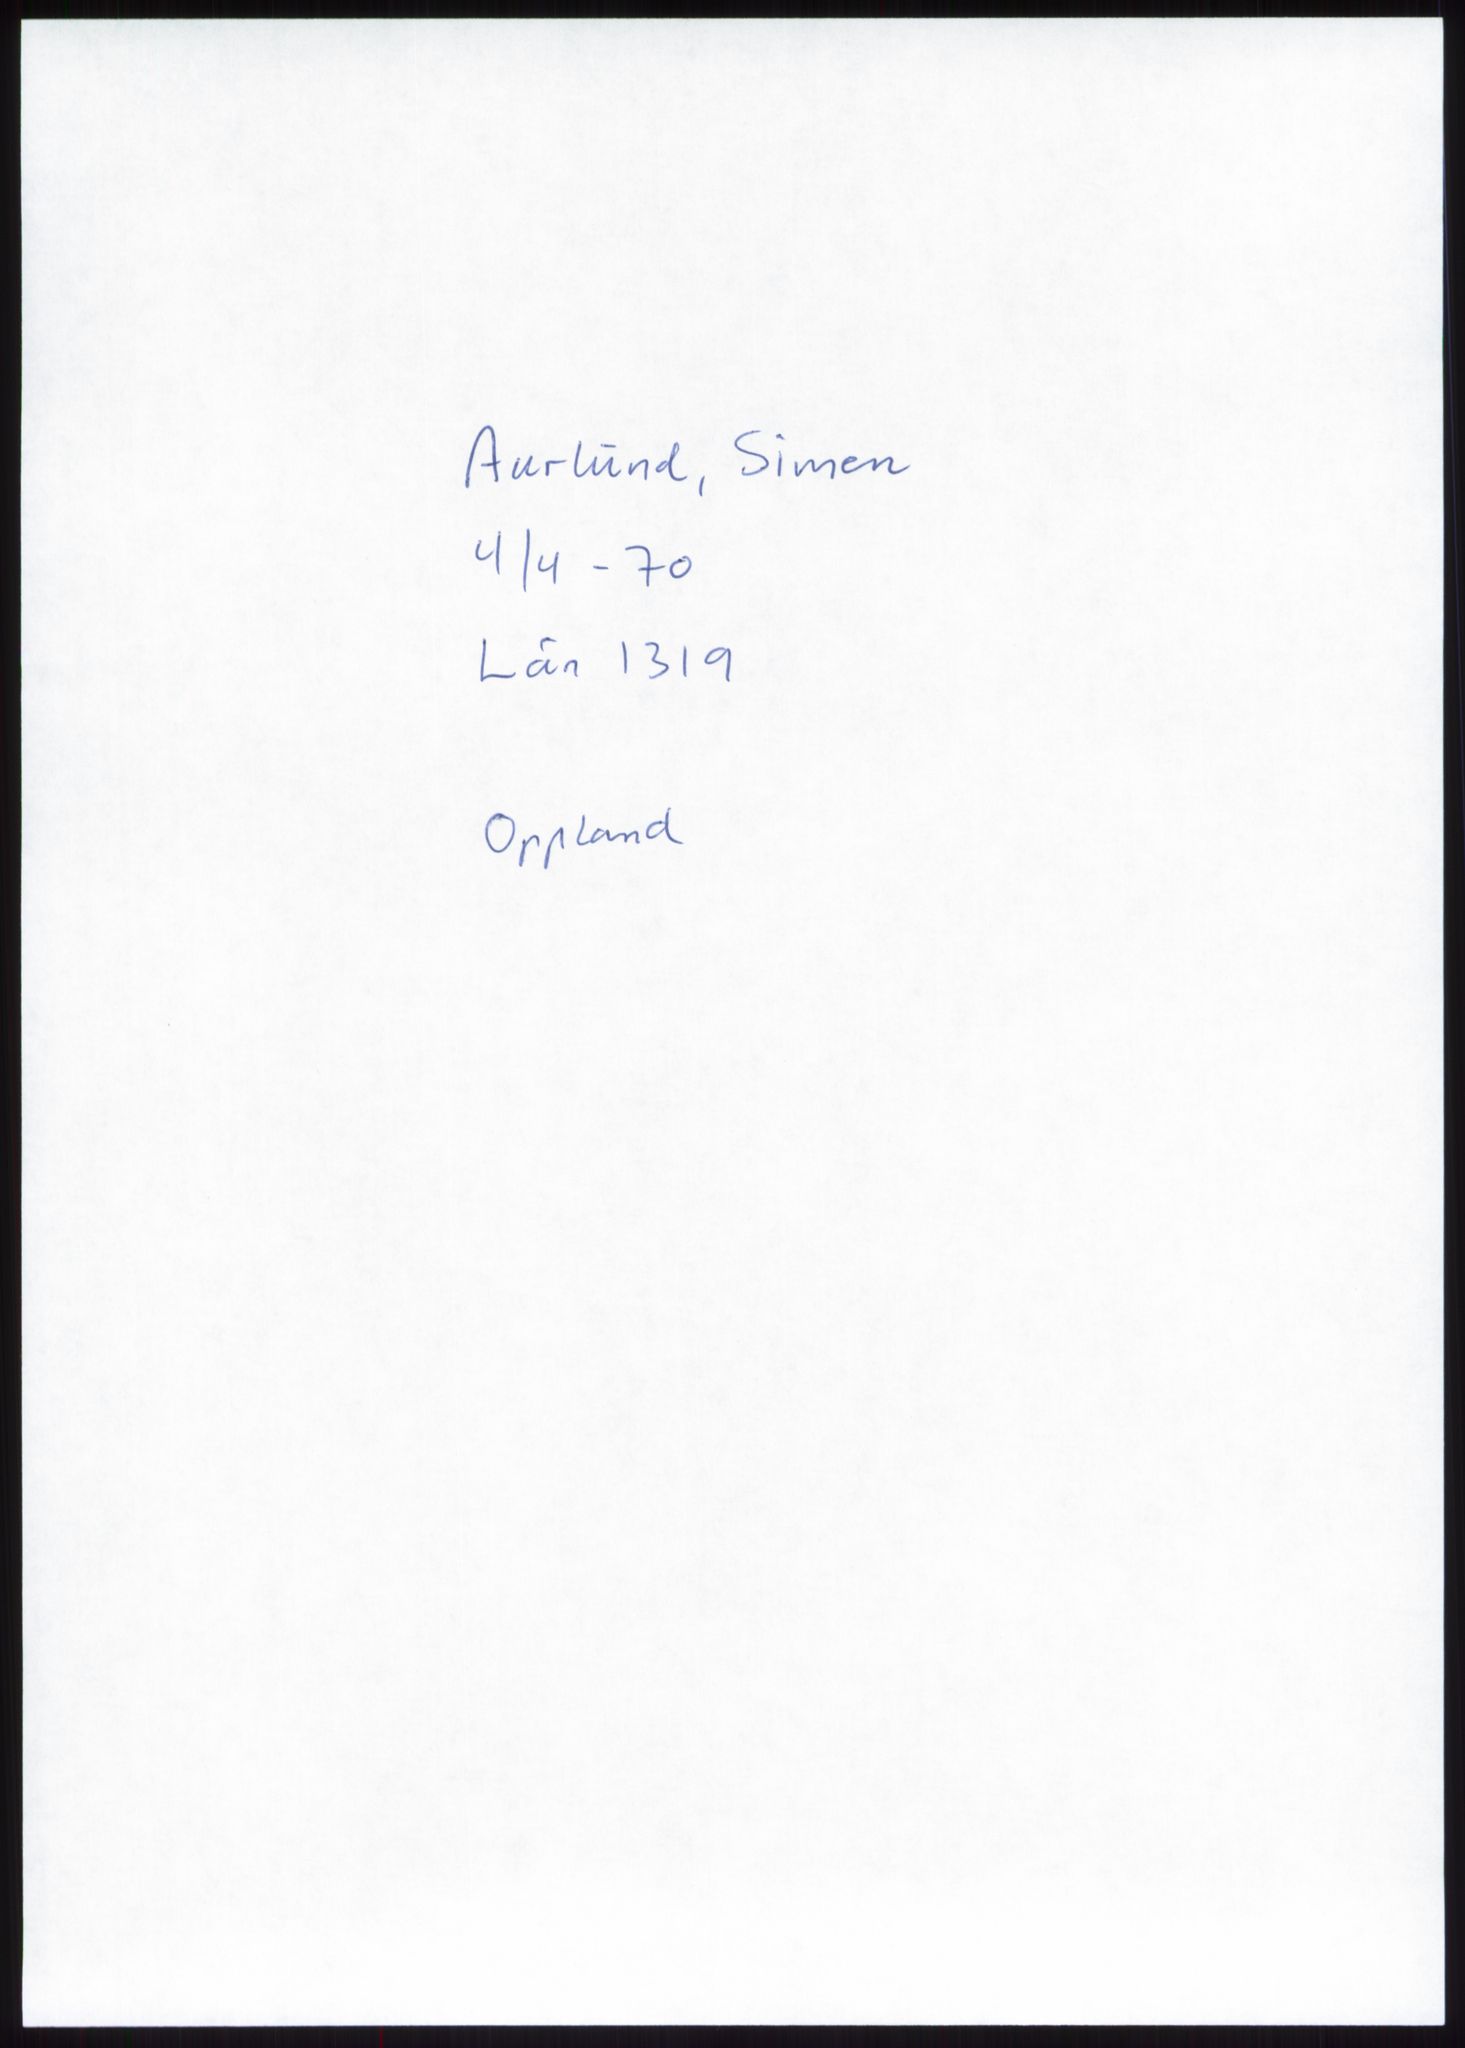 Aurlūnd, Simen
4/4 - 70
Lån 1319
Oppland